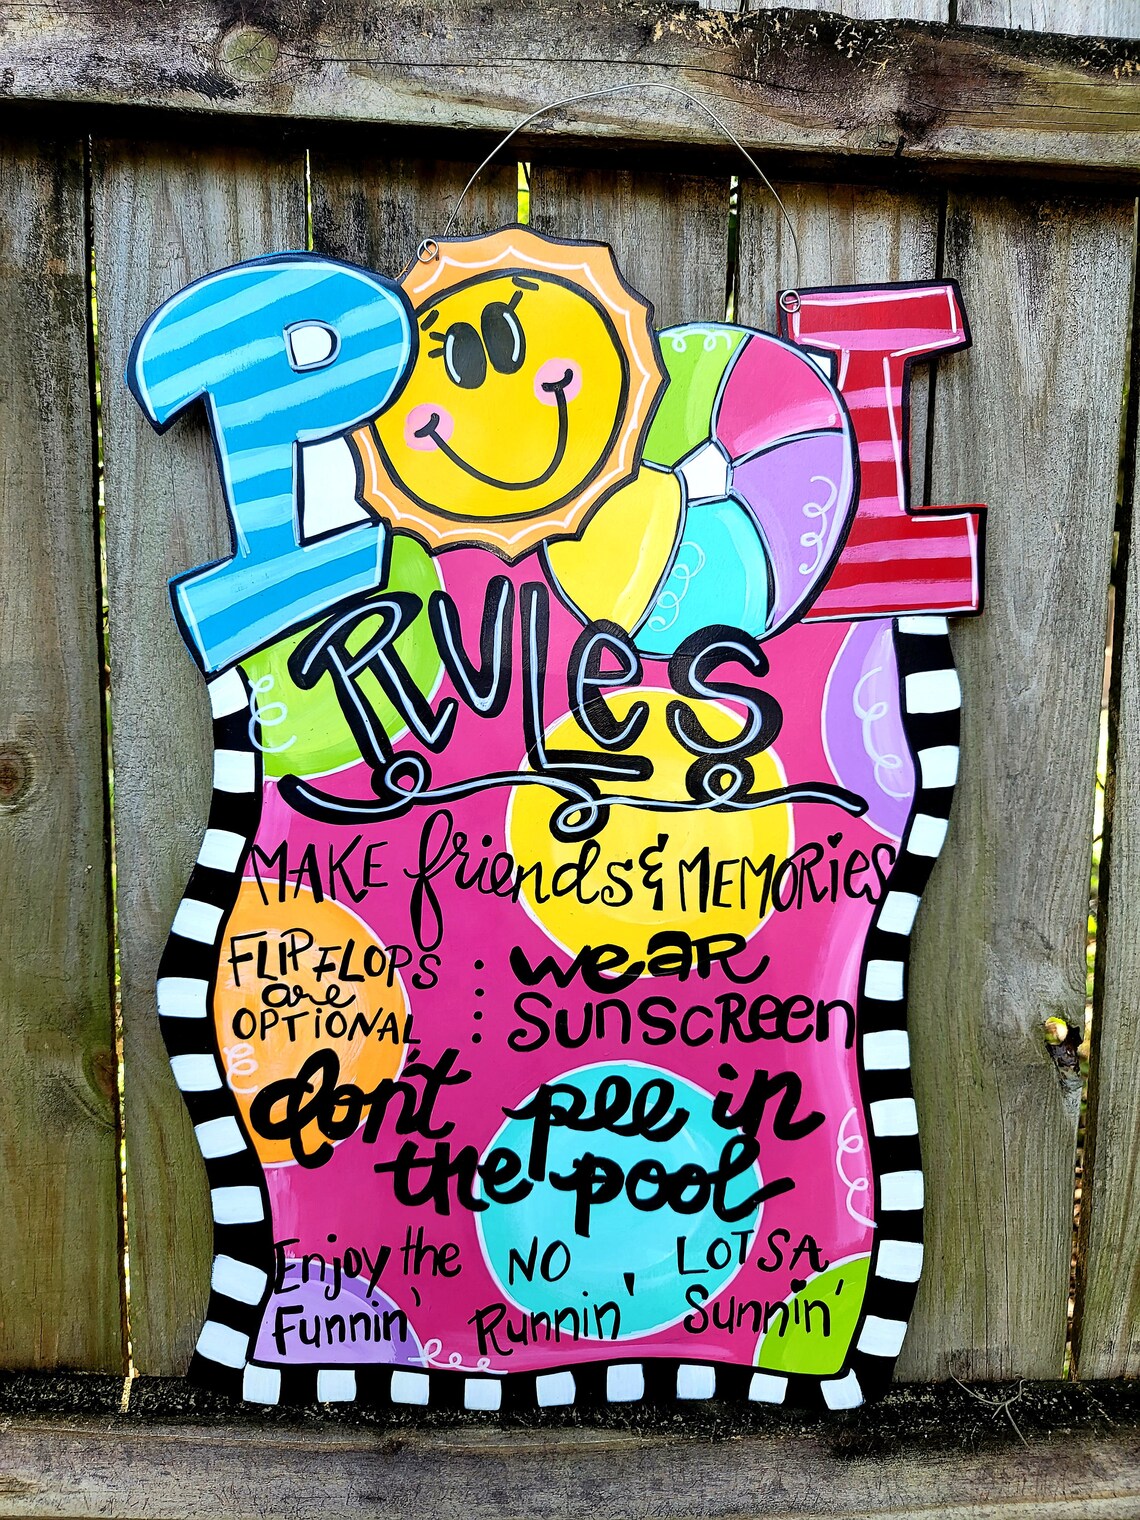 POOL
RULes
MAKE friends & MEMORies
FLiP FLOPS
are
OPTiONAL
weaR
SunscReen
don't pee in
the pool
Enjoy the
Funnin'
NO
Runnin'
LOTSA
Sunnin'